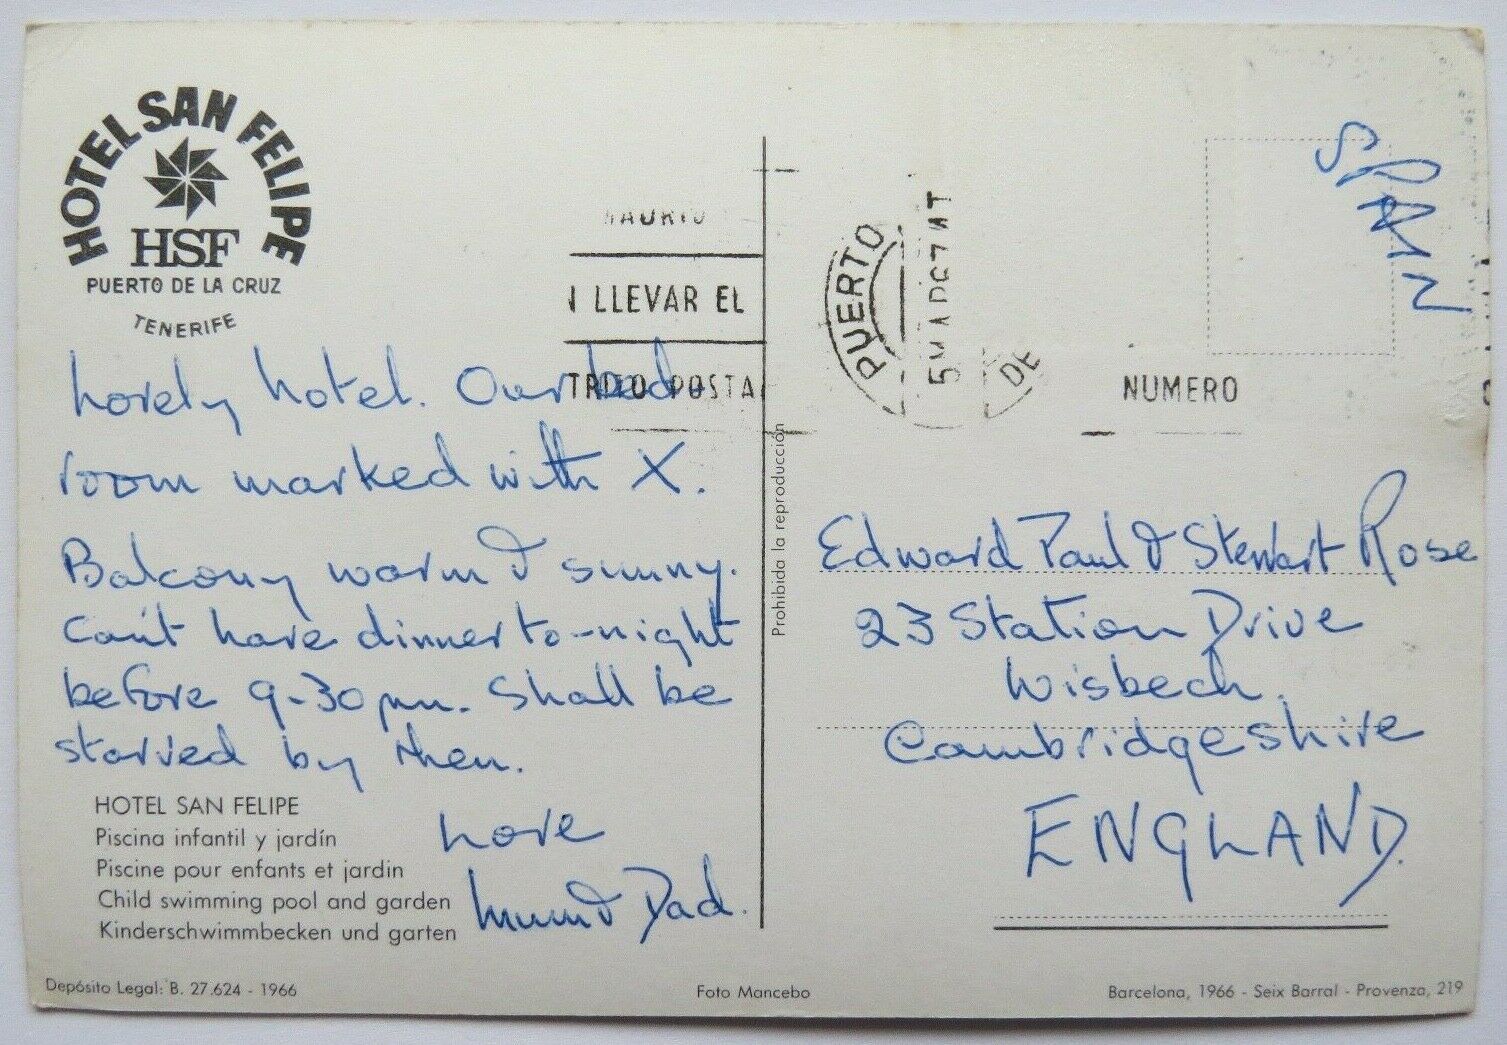 HOTEL SAN FELIPE
HSF
PUERTO DE LA CRUZ
TENERIFE
Lovely hotel. Our bed-
room marked with X.
Balcony warm & sunny.
Can't have dinner to-night
before 9-30 pm. Shall be
starved by then.
Love
Mum & Dad.
HOTEL SAN FELIPE
Piscina infantil y jardín
Piscine pour enfants et jardin
Child swimming pool and garden
Kinderschwimmbecken und garten
Depósito Legal: B. 27.624 - 1966
Foto Mancebo
Prohibida la reproducción
MADRID
LLEVAR EL
POSTAL
PUERTO
DE
NUMERO
SPAIN
Edward Paul & Stewart Rose
23 Station Drive
Wisbech,
Cambridgeshire
ENGLAND.
Barcelona, 1966 - Seix Barral - Provenza, 219